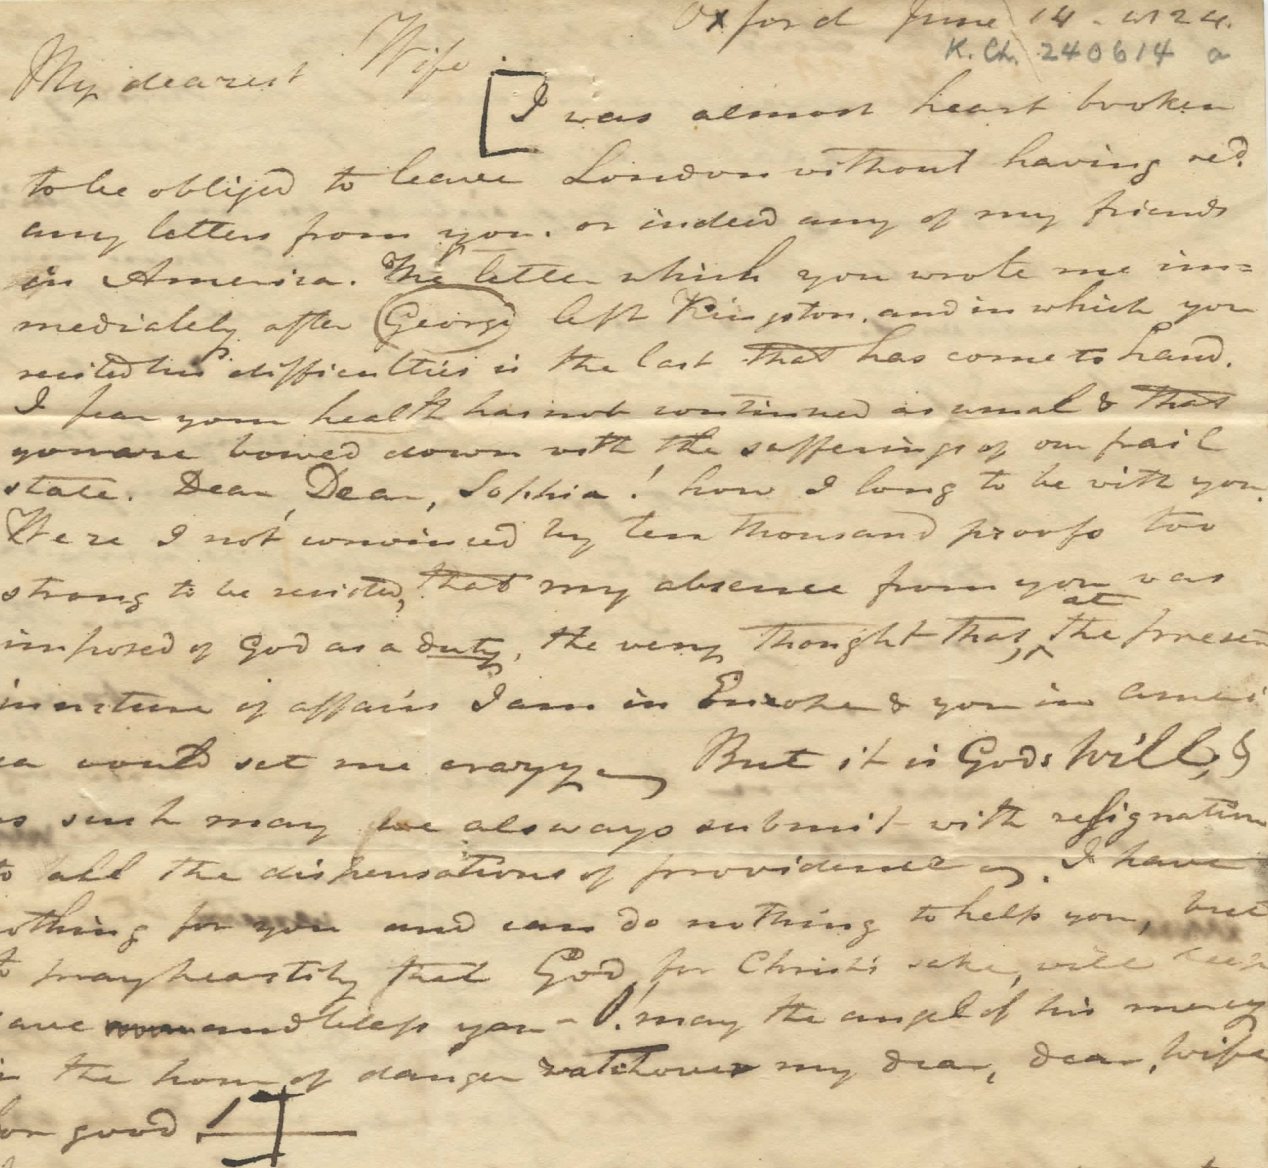 Oxford June 14 - 1824.
K. Ch. 240614 a
My dearest Wife.
[I was almost heart broken
to be obliged to leave London without having recd.
any letters from you. or indeed any of my friends
in America. The letter which you wrote me im=
mediately after George left Kingston. and in which you
recited his difficulties is the last that has come to hand.
I fear your health has not continued as usual & that
you are bowed down with the sufferings of our frail
state. Dear, Dear, Sophia! how I long to be with you.
Were I not convinced by ten thousand proofs too
strong to be resisted, that my absence from you was
imposed of God as a duty, the very thought that, at the presen
juncture of affairs I am in Europe & you in Ameri
ca would set me crazy But it is Gods Will, &
as such may we always submit with resignation
to all the dispensations of providence. I have
nothing for you and can do nothing to help you, but
to pray heartily that God, for Christ's sake, will keep
save and bless you - O! may the angel of his mercy
in the hour of danger watch over my dear, dear, wife
for good!]